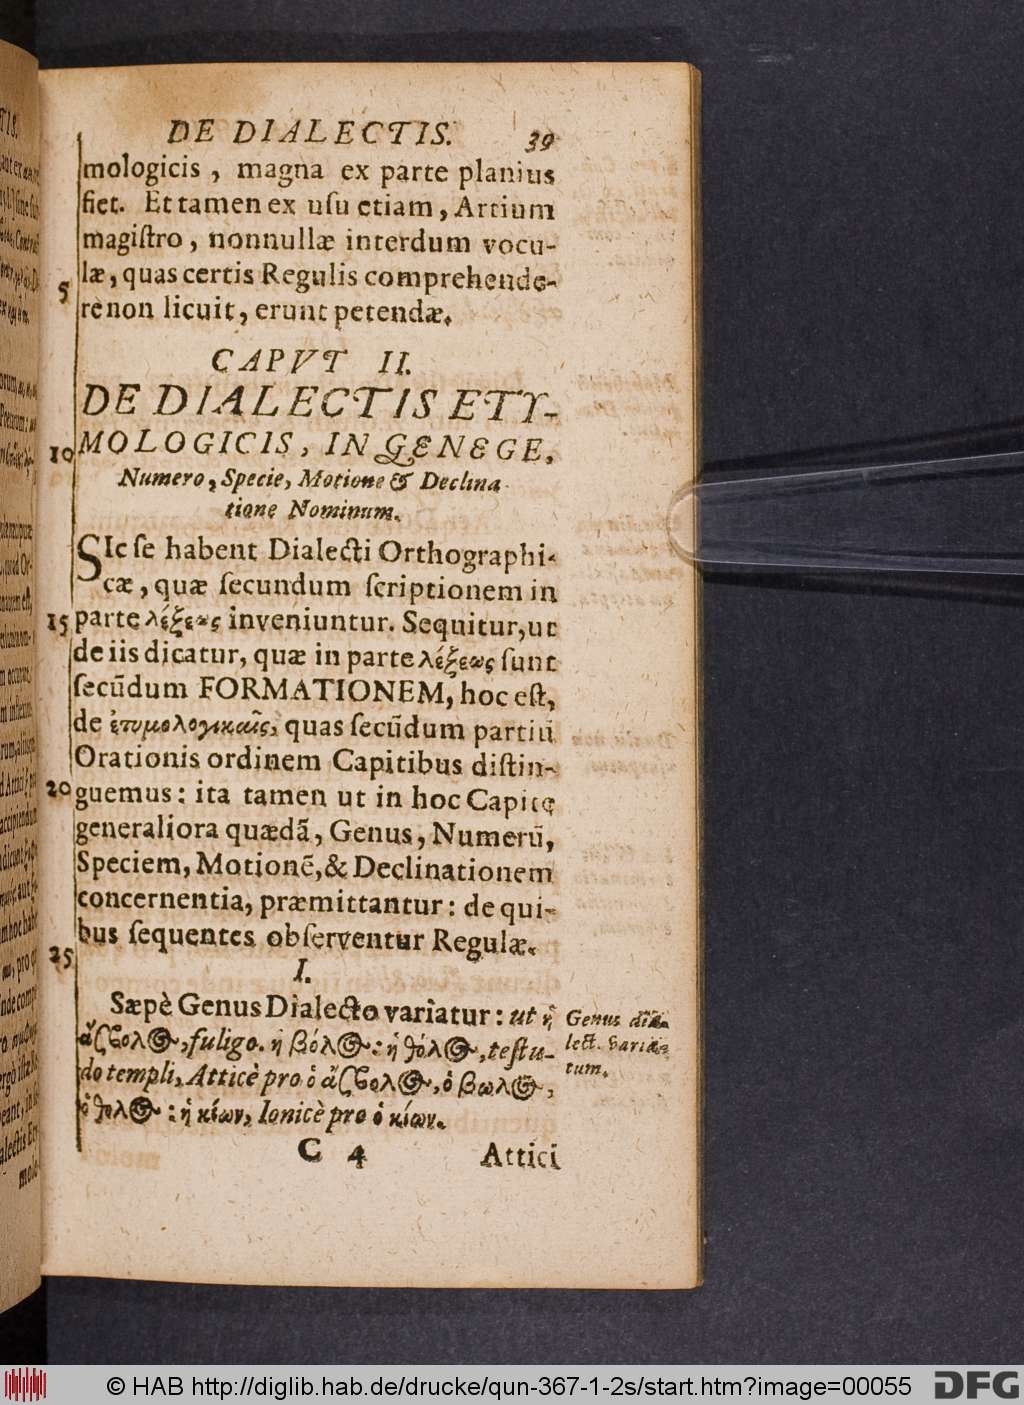 DE DIALECTIS. 39
mologicis, magna ex parte planius
fiet. Et tamen ex uſu etiam, Artium
magiſtro, nonnullæ interdum vocu-
læ, quas certis Regulis comprehende-
5
re non licuit, erunt petendæ.
CAPVT II.
DE DIALECTIS ETY-
10
MOLOGICIS, IN GENEGE,
Numero, Specie, Motione & Declina
tione Nominum.
SIc ſe habent Dialecti Orthographi-
cæ, quæ ſecundum ſcriptionem in
15
parte λέξεως inveniuntur. Sequitur, ut
de iis dicatur, quæ in parte λέξεως ſunt
ſecũdum FORMATIONEM, hoc eſt,
de ἐτυμολογικαῖς, quas ſecũdum partiū
Orationis ordinem Capitibus diſtin-
20
guemus: ita tamen ut in hoc Capite
generaliora quædã, Genus, Numerũ,
Speciem, Motionẽ, & Declinationem
concernentia, præmittantur: de qui-
bus ſequentes obſerventur Regulæ.
25
I.
Sæpè Genus Dialecto variatur: ut ἡ
ἄσβολος, fuligo. ἡ βόλος: ἡ θόλος, teſtu-
do templi, Atticè pro ὁ ἄσβολος, ὁ βωλος,
ὁ θολος: ἡ κίων, Ionicè pro ὁ κίων.
Genus dia-
lect. varia-
tum.
C 4 Attici
© HAB http://diglib.hab.de/drucke/qun-367-1-2s/start.htm?image=00055 DFG